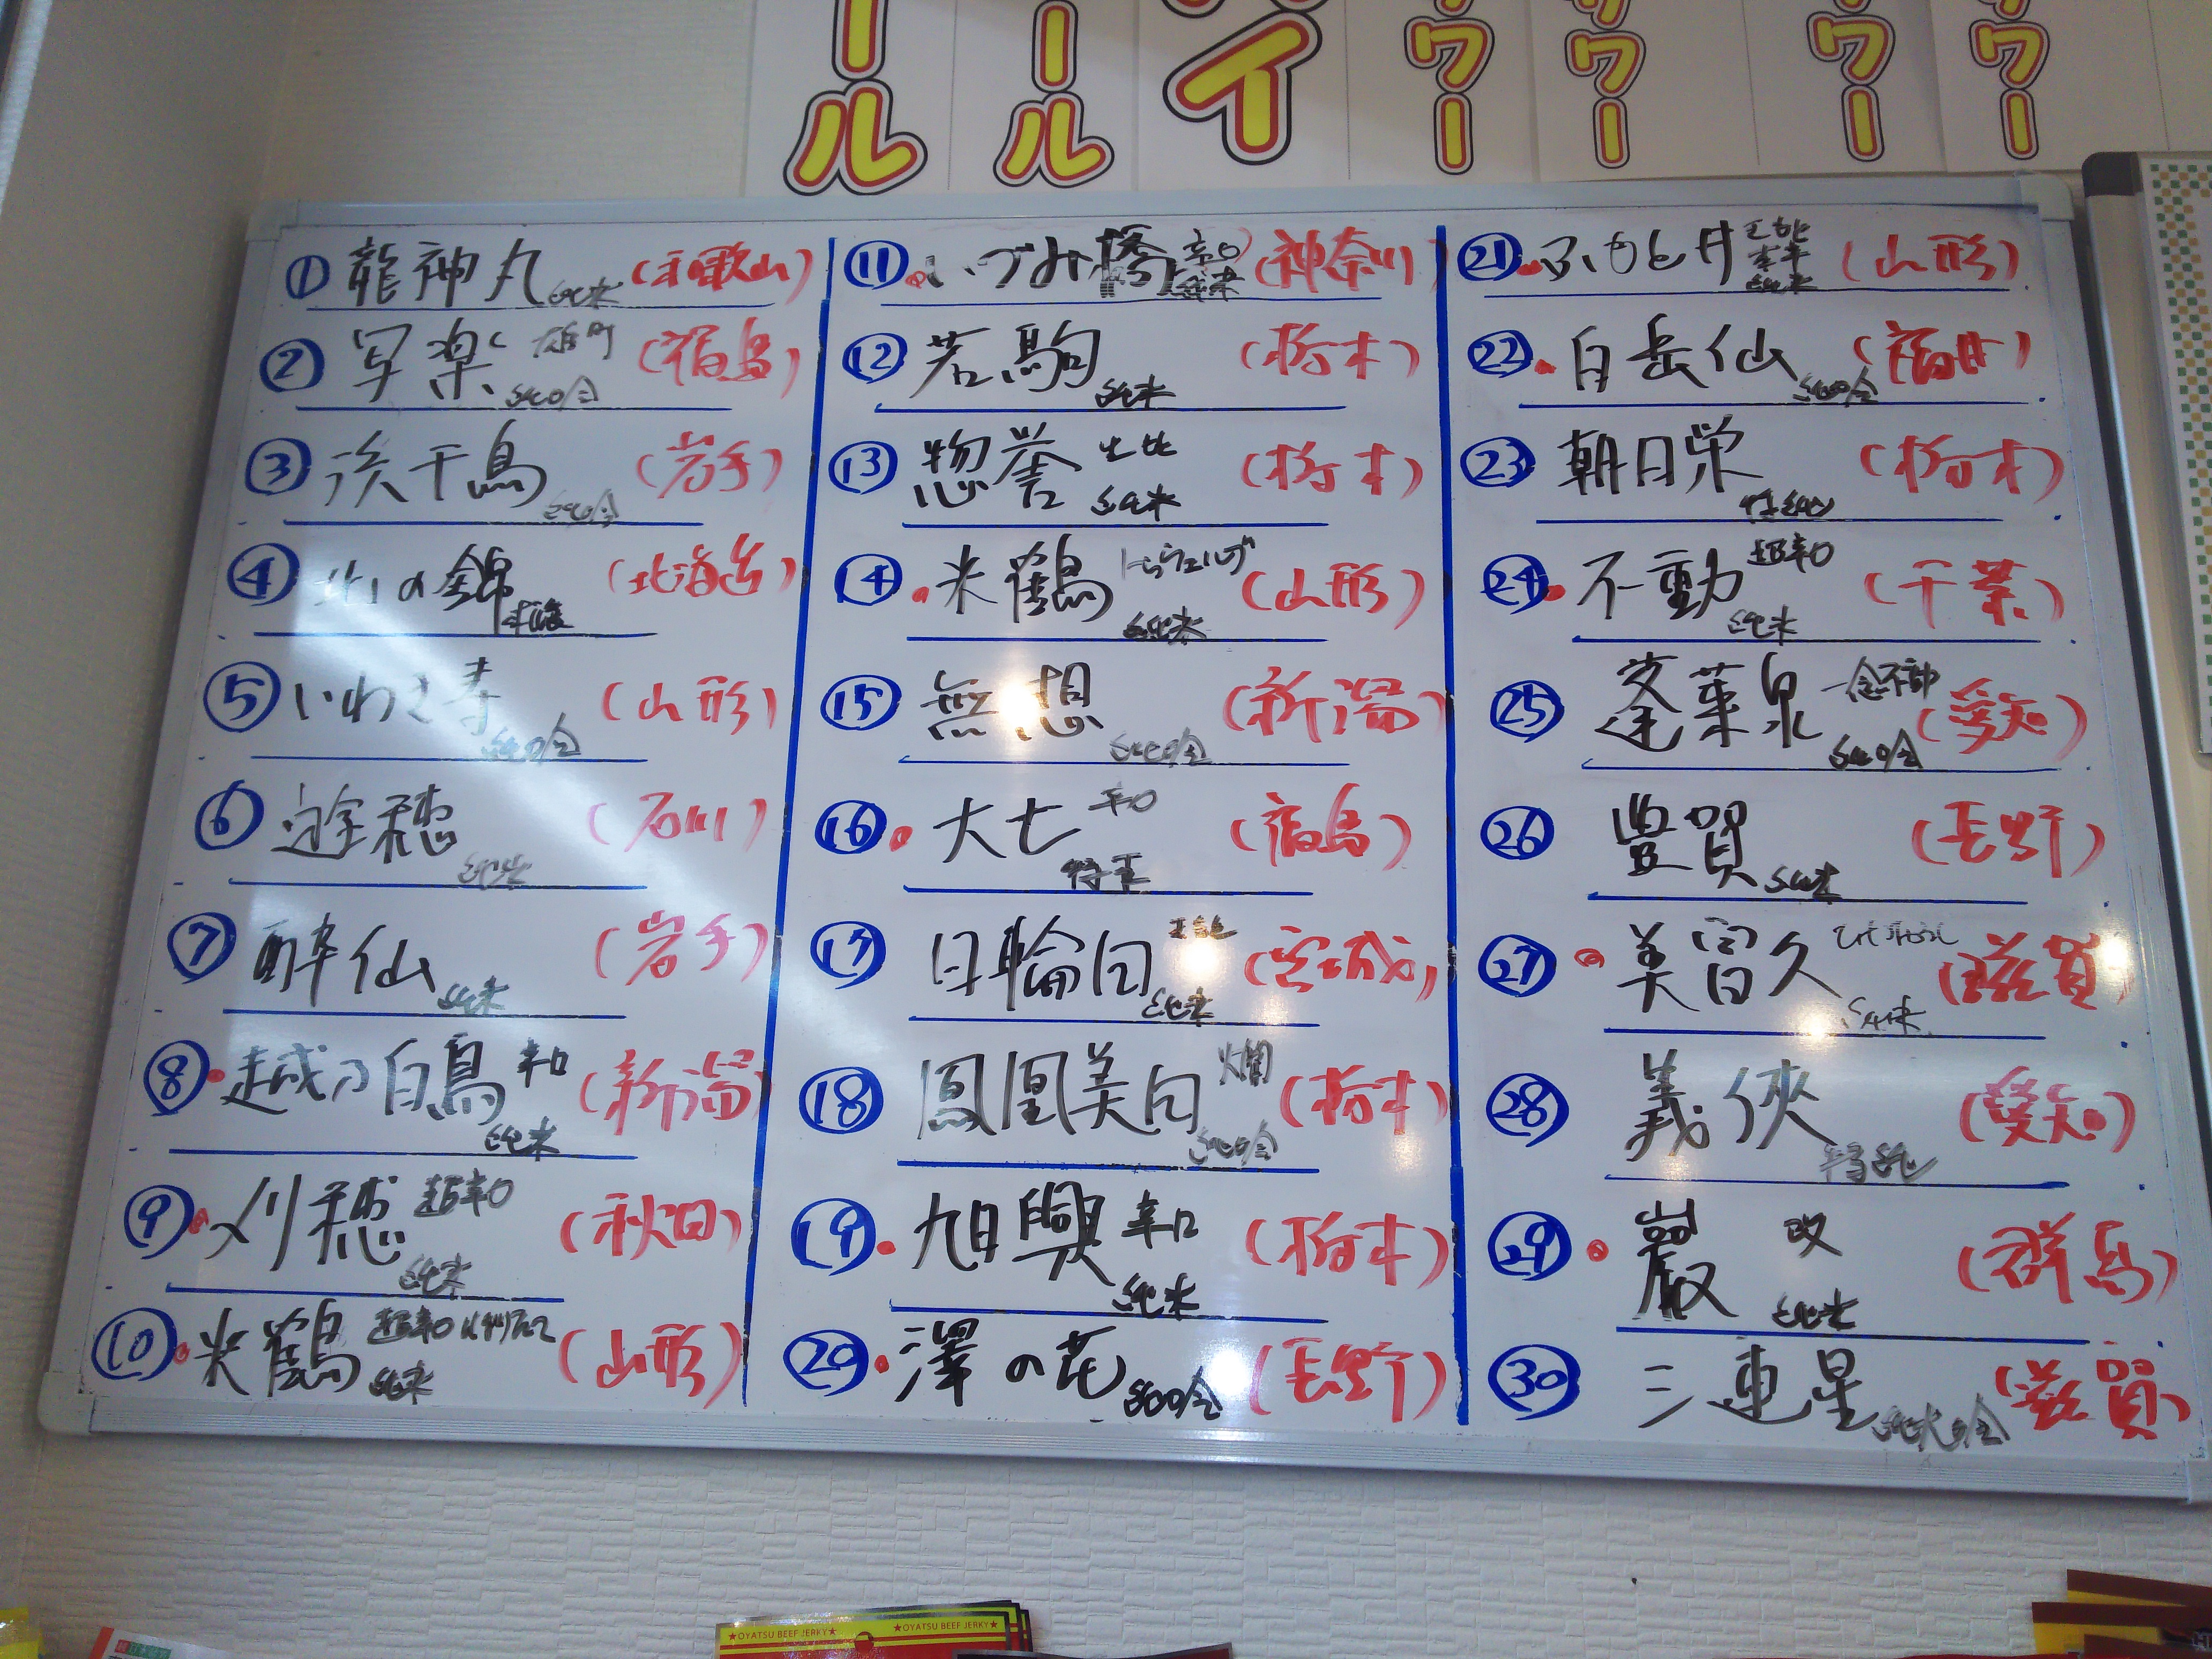 ール
ール
イ
ワー
ワー
ワー
ワー
① 龍神丸 純米 (和歌山)
② 写楽 雄町 純吟 (福島)
③ 浜千鳥 純吟 (岩手)
④ 北の錦 (北海道)
⑤ いわき寿 純吟 (山形)
⑥ 遊穂 純米 (石川)
⑦ 酔仙 純米 (岩手)
⑧ 越乃白鳥 辛口 純米 (新潟)
⑨ 刈穂 超辛口 純米 (秋田)
⑩ 米鶴 超辛口 純米 (山形)
⑪ いづみ橋 辛口 純米 (神奈川)
⑫ 若駒 純米 (栃木)
⑬ 惣誉 生酛 純米 (栃木)
⑭ 米鶴 純米 (山形)
⑮ 無想 純吟 (新潟)
⑯ 大七 (福島)
⑰ 日輪田 純米 (宮城)
⑱ 鳳凰美田 燗 純吟 (栃木)
⑲ 旭興 辛口 純米 (栃木)
⑳ 澤の花 純吟 (長野)
㉑ ふもと井 純米 (山形)
㉒ 白岳仙 純吟 (福井)
㉓ 朝日栄 (栃木)
㉔ 不動 超辛口 純米 (千葉)
㉕ 蓬莱泉 一念不動 純吟 (愛知)
㉖ 豊賀 純米 (長野)
㉗ 美冨久 純米 (滋賀)
㉘ 義侠 特純 (愛知)
㉙ 巖 改 純米 (群馬)
㉚ 三連星 純米吟 (滋賀)
★OYATSU BEEF JERKY★ ★OYATSU BEEF JERKY★